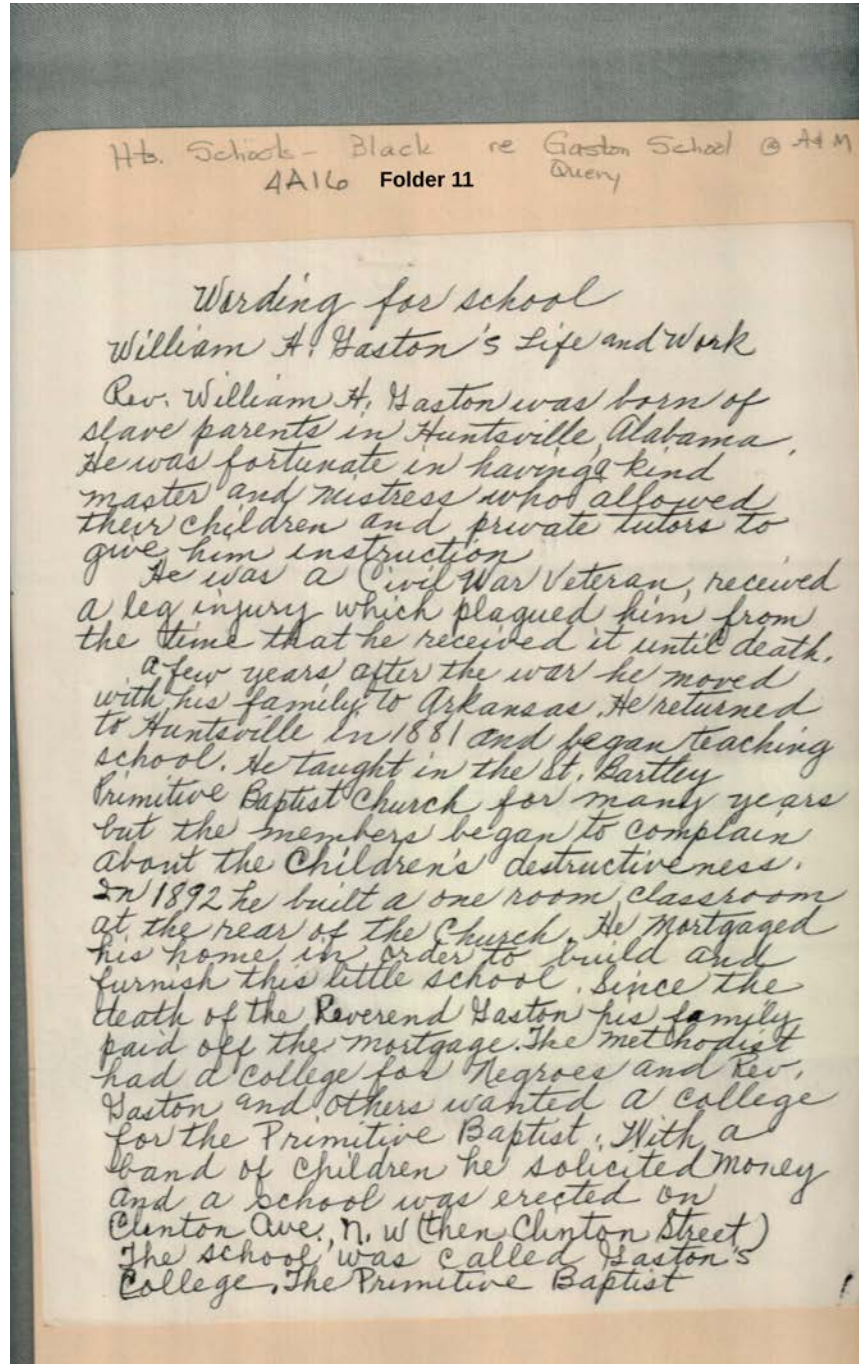 Hts. Schools - Black re Gaston School @ A&M
Query
4A16 Folder 11
Wording for school
William H. Gaston's Life and Work
Rev. William H. Gaston was born of
slave parents in Huntsville, Alabama.
He was fortunate in having a kind
master and mistress who allowed
their children and private tutors to
give him instruction
He was a Civil War Veteran, received
a leg injury which plagued him from
the time that he received it until death.
A few years after the war he moved
with his family to Arkansas. He returned
to Huntsville in 1881 and began teaching
school. He taught in the St. Bartley
Primitive Baptist Church for many years
but the members began to complain
about the Children's destructiveness.
In 1892 he built a one room classroom
at the rear of the Church. He mortgaged
his home in order to build and
furnish this little school. Since the
death of the Reverend Gaston his family
paid off the mortgage. The methodist
had a college for Negroes and Rev.
Gaston and others wanted a college
for the Primitive Baptist. With a
band of children he solicited money
and a school was erected on
Clinton Ave., N. W (then Clinton Street)
The school was called Gaston's
College. The Primitive Baptist
1